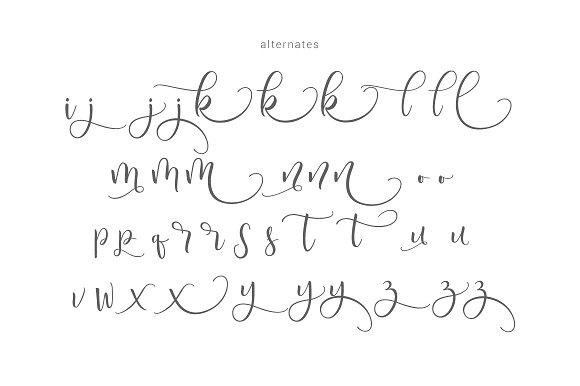 alternates
i j j j k k k l l l
m m m n n n o o
p p q r r s s t t u u
v w x x y y y z z z